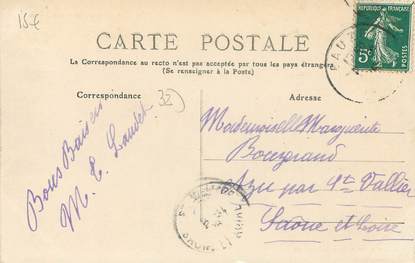 15€
CARTE POSTALE
La Correspondance au recto n'est pas acceptée par tous les pays étrangers
(Se renseigner à la Poste)
Correspondance
32
Adresse
REPUBLIQUE FRANÇAISE
5c
POSTES
Bons Baisers
M. E. Laudet
Mademoiselle Marguerite
par St Vallier
Saône et Loire